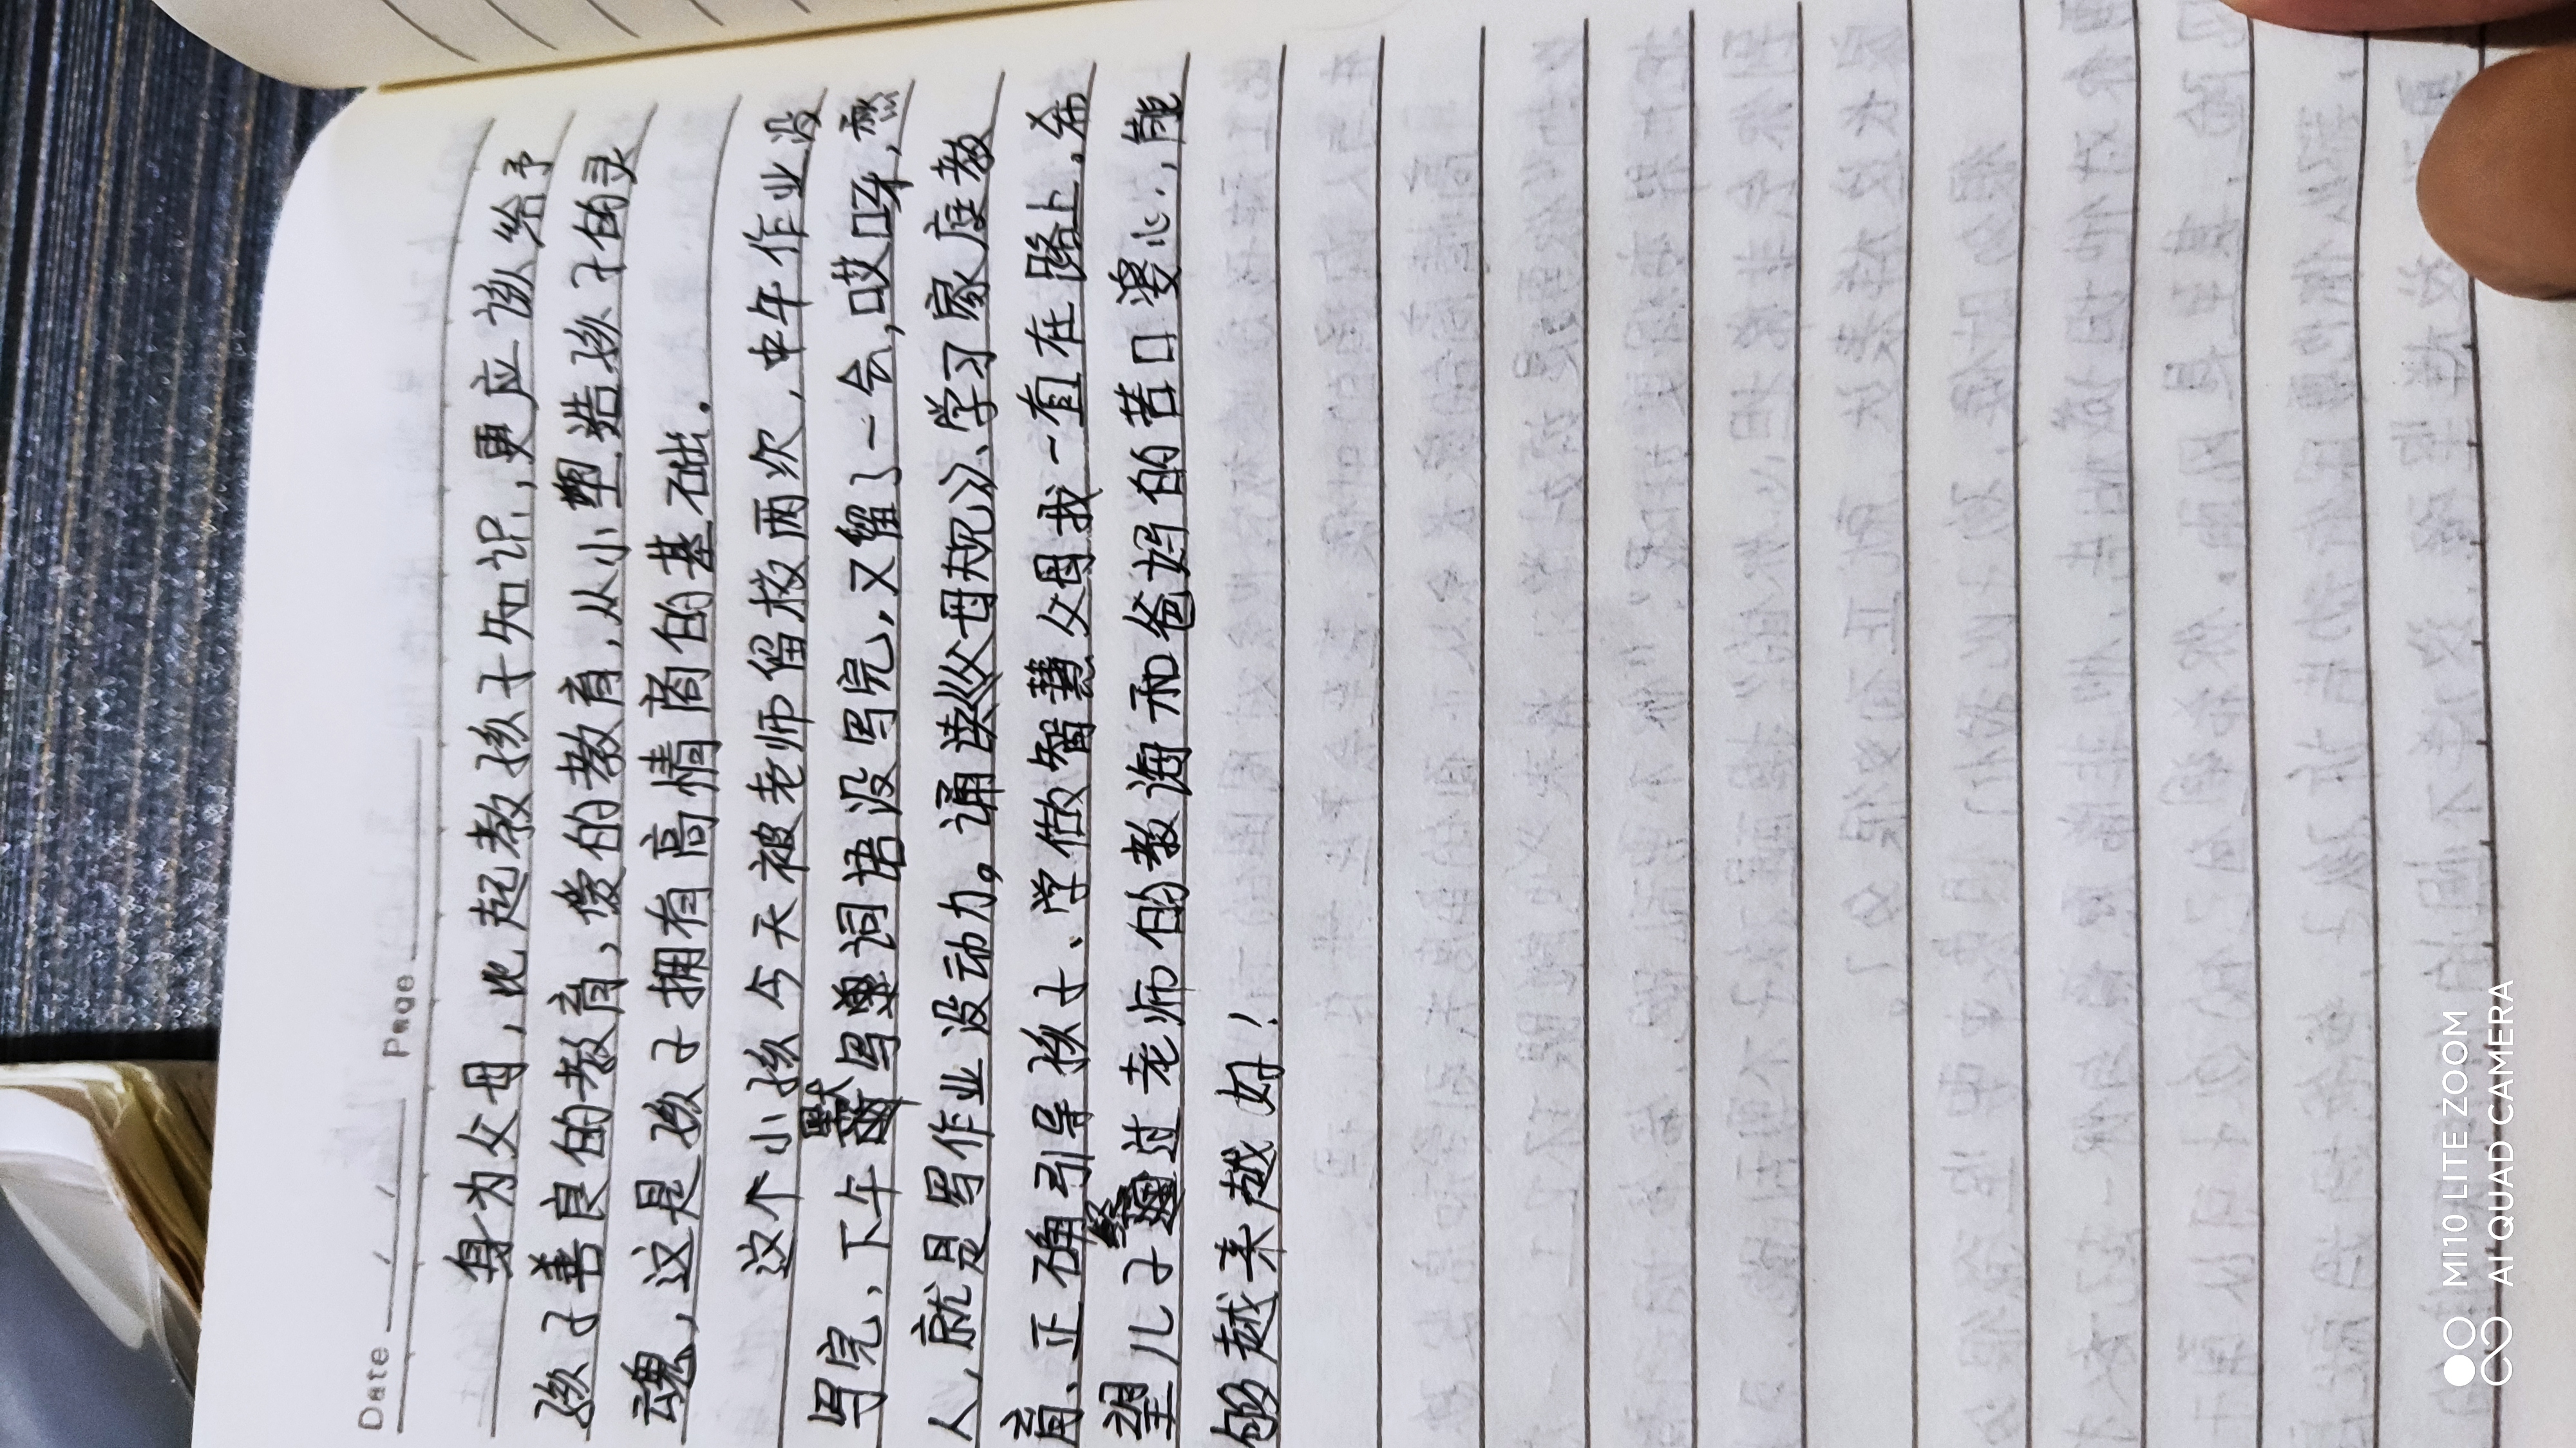 Date / / Page
身为父母，比起教孩子知识，更应该给予
孩子善良的教育，爱的教育，从小塑造孩子的灵
魂，这是孩子拥有高情商的基础．
这个小孩今天被老师留校两次，中午作业没
写完、下午默写词语没写完，又留了一会，哎呀，愁
人，就是写作业没动力。诵读《父母规》、学习家庭教
育、正确引导孩子、学做智慧父母我一直在路上．希
望儿子经过老师的教诲和爸妈的苦口婆心，能
够越来越好！
MI10 LITE ZOOM
AI QUAD CAMERA